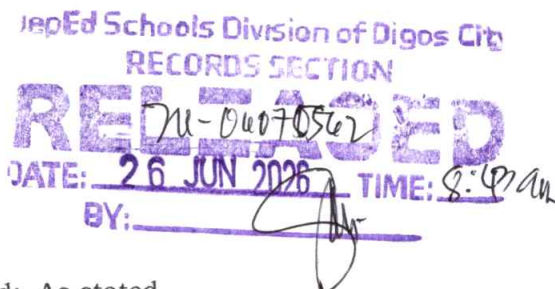 DepEd Schools Division of Digos City
RECORDS SECTION
RELEASED
DATE: 26 JUN 2026 TIME:
BY:
As stated